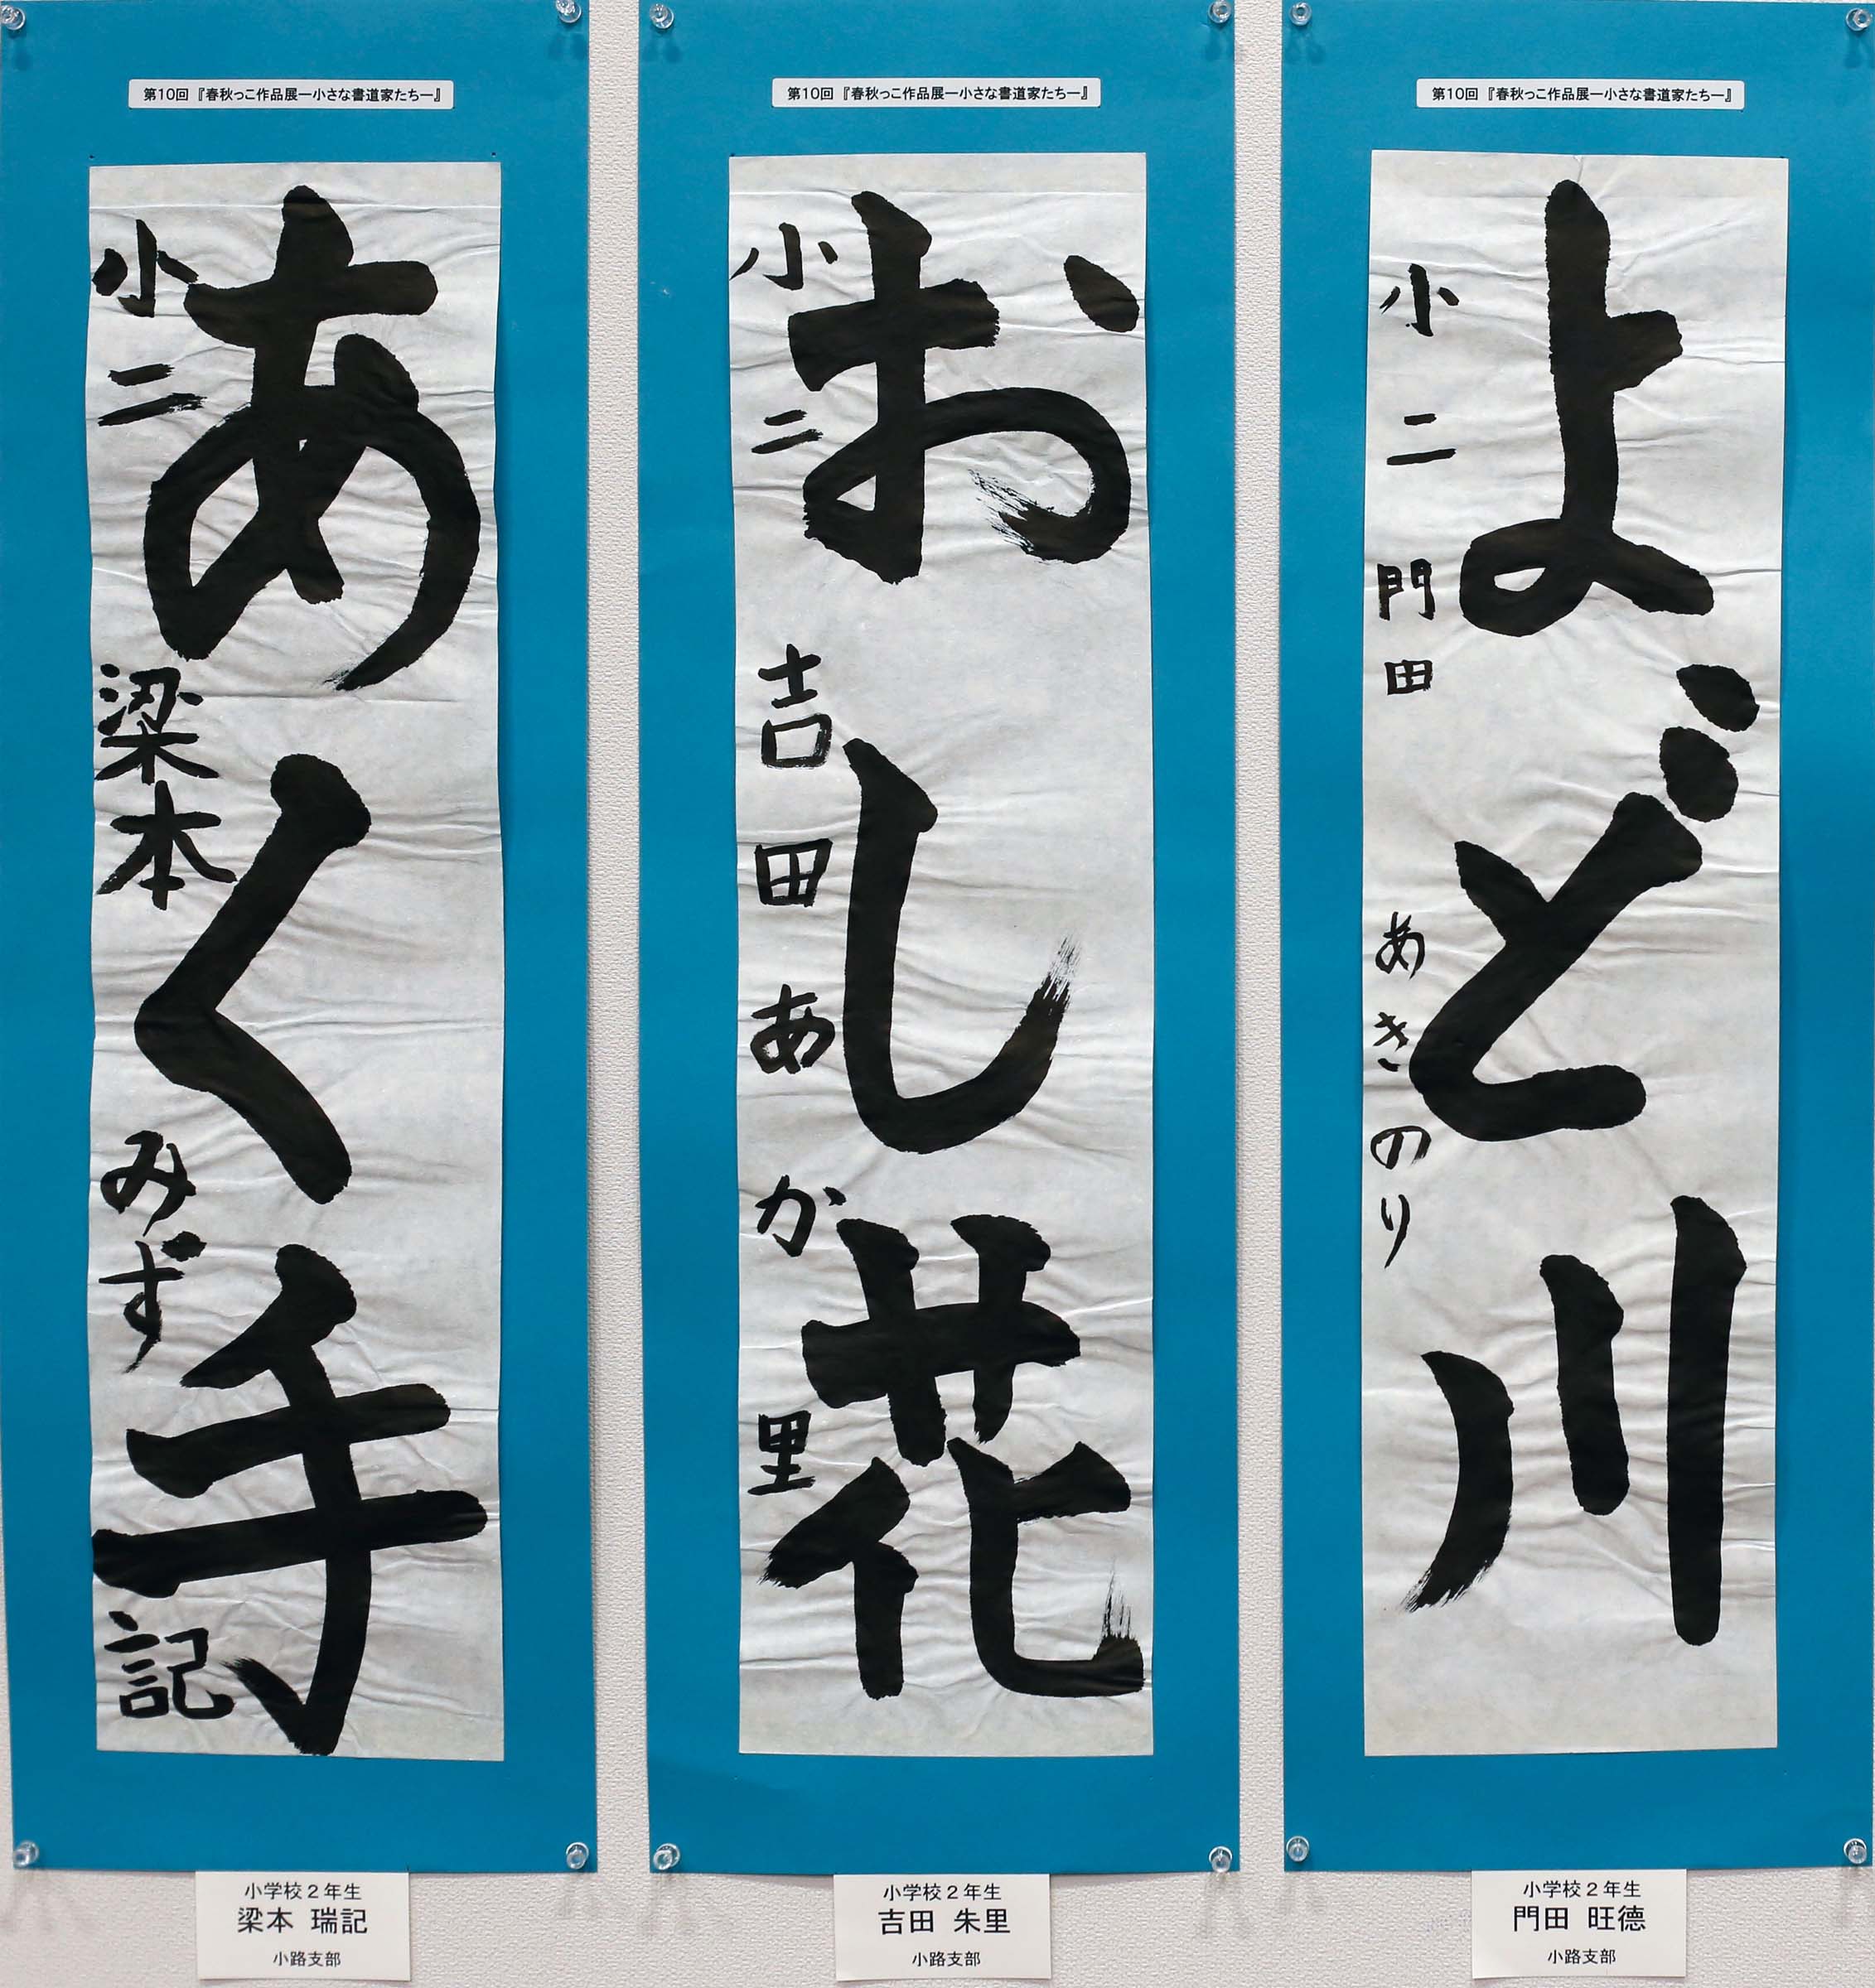 第10回 『春秋っこ作品展ー小さな書道家たちー』
あく手
小二 梁本 みず記
小学校2年生
梁本 瑞記
小路支部
第10回 『春秋っこ作品展ー小さな書道家たちー』
おし花
小二 吉田 あか里
小学校2年生
吉田 朱里
小路支部
第10回 『春秋っこ作品展ー小さな書道家たちー』
よど川
小二 門田 あきのり
小学校2年生
門田 旺德
小路支部